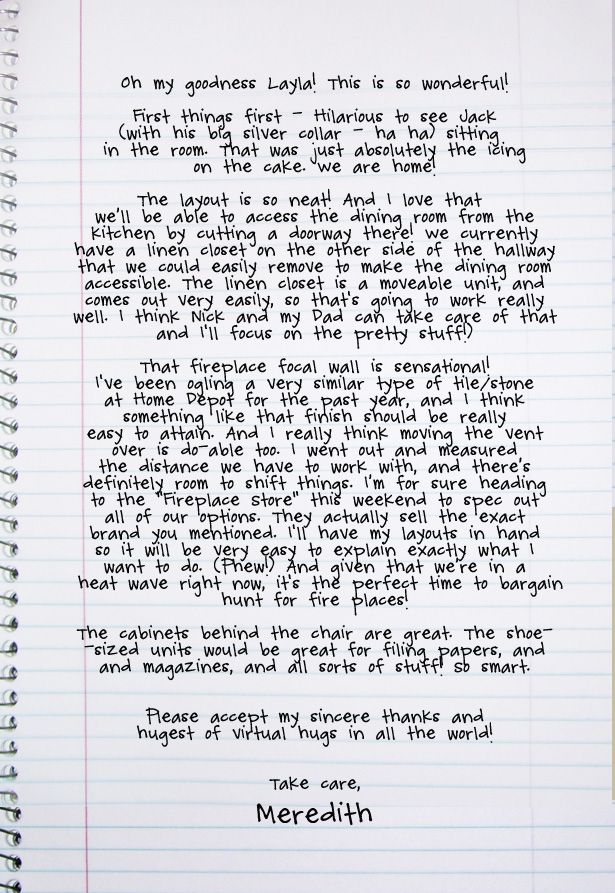 Oh my goodness Layla! This is so wonderful!
First things first - Hilarious to see Jack
(with his big silver collar - ha ha) sitting
in the room. That was just absolutely the icing
on the cake. We are home!
The layout is so neat! And I love that
we'll be able to access the dining room from the
kitchen by cutting a doorway there! We currently
have a linen closet on the other side of the hallway
that we could easily remove to make the dining room
accessible. The linen closet is a moveable unit, and
comes out very easily, so that's going to work really
well. I think Nick and my Dad can take care of that
and I'll focus on the pretty stuff!)
That fireplace focal wall is sensational!
I've been ogling a very similar type of tile/stone
at Home Depot for the past year, and I think
something like that finish should be really
easy to attain. And I really think moving the vent
over is do-able too. I went out and measured
the distance we have to work with, and there's
definitely room to shift things. I'm for sure heading
to the "Fireplace Store" this weekend to spec out
all of our options. They actually sell the exact
brand you mentioned. I'll have my layouts in hand
so it will be very easy to explain exactly what I
want to do. (Phew!) And given that we're in a
heat wave right now, it's the perfect time to bargain
hunt for fire places!
The cabinets behind the chair are great. The shoe-
-sized units would be great for filing papers, and
and magazines, and all sorts of stuff! So smart.
Please accept my sincere thanks and
hugest of virtual hugs in all the world!
Take care,
Meredith